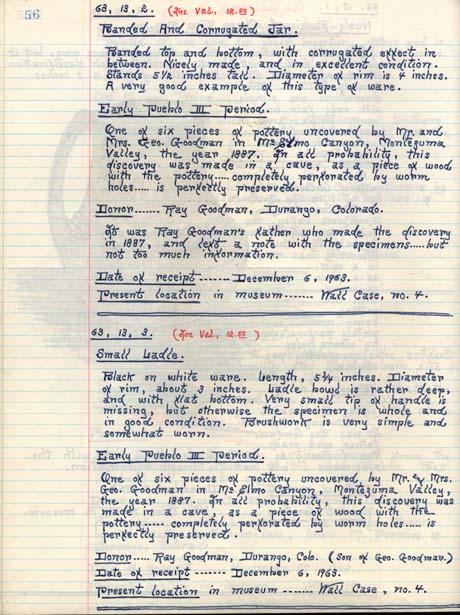 56
63, 13, 2. (Ins. Val., 12.50)
Banded And Corrugated Jar.
Banded top and bottom, with corrugated effect in
between. Nicely made, and in excellent condition.
Stands 5 1/2 inches tall. Diameter of rim is 4 inches.
A very good example of this type of ware.
Early Pueblo III Period.
One of six pieces of pottery uncovered by Mr. and
Mrs. Geo. Goodman in McElmo Canyon, Montezuma
Valley, the year 1887. In all probability, this
discovery was made in a cave, as a piece of wood
with the pottery.....completely perforated by worm
holes.....is perfectly preserved.
Donor...... Ray Goodman, Durango, Colorado.
It was Ray Goodman's father who made the discovery
in 1887, and left a note with the specimens.....but
not too much information.
Date of receipt------- December 6, 1963.
Present location in museum------- Wall Case, no. 4.
63, 13, 3. (Ins. Val., 12.50)
Small Ladle.
Black on white ware. Length, 5 3/4 inches. Diameter
of rim, about 3 inches. Ladle bowl is rather deep,
and with flat bottom. Very small tip of handle is
missing, but otherwise the specimen is whole and
in good condition. Brushwork is very simple and
somewhat worn.
Early Pueblo III Period.
One of six pieces of pottery uncovered by Mr. & Mrs.
Geo. Goodman in McElmo Canyon, Montezuma Valley,
the year 1887. In all probability, this discovery was
made in a cave, as a piece of wood with the
pottery----- completely perforated by worm holes..... is
perfectly preserved.
Donor..... Ray Goodman, Durango, Colo. (Son of Geo. Goodman.)
Date of receipt ------- December 6, 1963.
Present location in museum ------- Wall Case, no. 4.